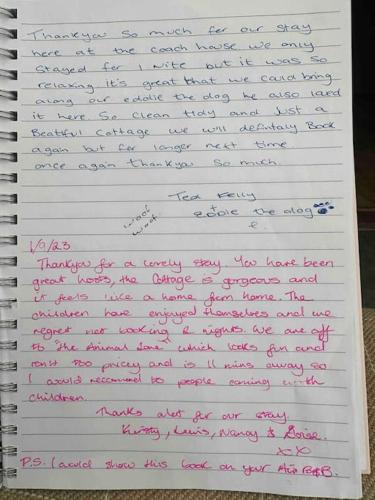 Thankyou so much for our stay
here at the coach house we only
stayed for 1 nite but it was so
relaxing it's great that we could bring
along our eddie the dog he also loved
it here. So clean tidy and just a
Beatiful Cottage we will defintaly Book
again but for longer next time
once again thankyou so much.
Ted Kelly
+
eddie the dog
woof
woof
1/9/23
Thankyou for a lovely stay. You have been
great hosts, the cottage is gorgeous and
it feels like a home from home. The
children have enjoyed themselves and we
regret not booking 2 nights. We are off
to "the Animal" which looks fun and
not too pricey and is 11 mins away so
I would recommend to people coming with
children.
Thanks alot for our stay.
Kirsty, Lewis, Nancy &
xx
P.S. I would show this book on your Air B&B.